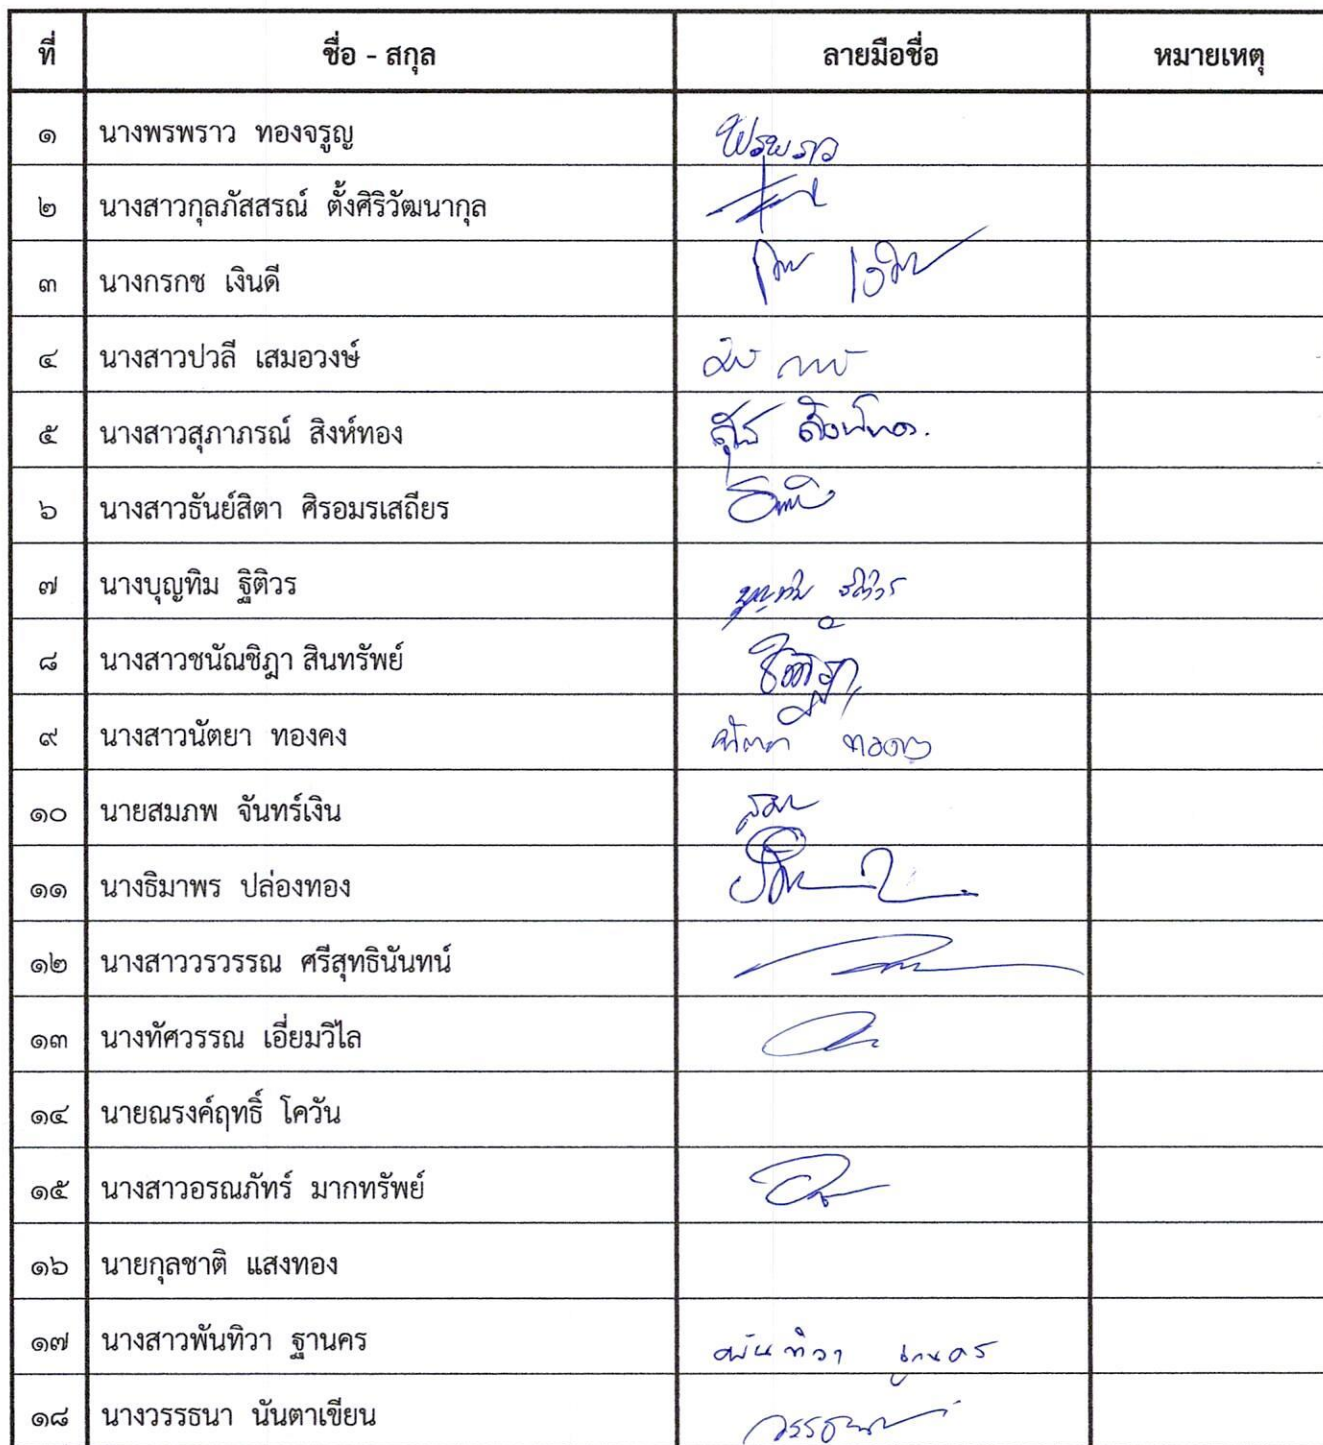 ที่ ชื่อ - สกุล ลายมือชื่อ หมายเหตุ
๑ นางพรพราว ทองจรูญ พรพราว
๒ นางสาวกุลภัสสรณ์ ตั้งศิริวัฒนากุล
๓ นางกรกช เงินดี
๔ นางสาวปวลี เสมอวงษ์
๕ นางสาวสุภาภรณ์ สิงห์ทอง
๖ นางสาวธันย์สิตา ศิรอมรเสถียร
๗ นางบุญทิม ฐิติวร บุญทิม ฐิติวร
๘ นางสาวชนัณชิฎา สินทรัพย์
๙ นางสาวนัตยา ทองคง นัตยา ทองคง
๑๐ นายสมภพ จันทร์เงิน
๑๑ นางธิมาพร ปล่องทอง
๑๒ นางสาววรวรรณ ศรีสุทธินันทน์
๑๓ นางทัศวรรณ เอี่ยมวิไล
๑๔ นายณรงค์ฤทธิ์ โควัน
๑๕ นางสาวอรณภัทร์ มากทรัพย์
๑๖ นายกุลชาติ แสงทอง
๑๗ นางสาวพันทิวา ฐานคร พันทิวา ฐานคร
๑๘ นางวรรธนา นันตาเขียน วรรธนา